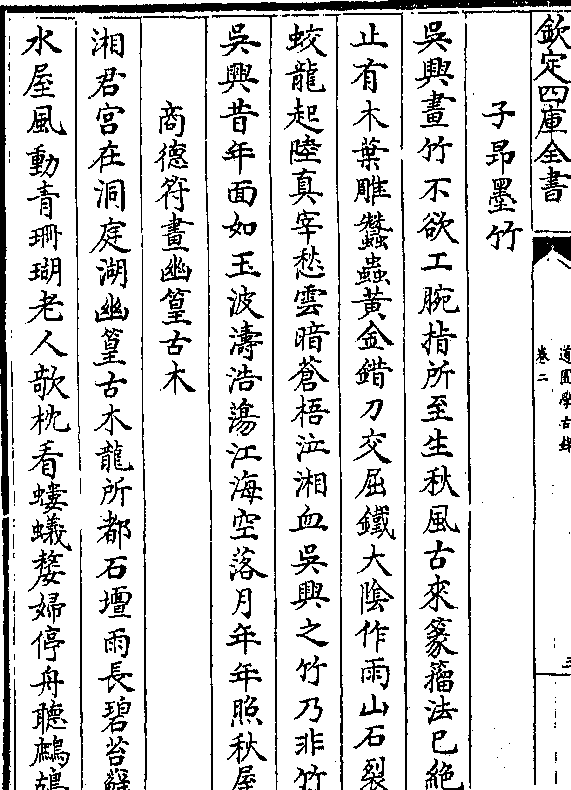 欽定四庫全書
道園學古錄
卷二
子昻墨竹
吳興畫竹不欲工腕指所至生秋風古來篆籀法已絶
止有木葉雕蠶蟲黃金錯刀交屈鐵大陰作雨山石裂
蛟龍起陸真宰愁雲暗蒼梧泣湘血吳興之竹乃非竹
吳興昔年面如玉波濤浩蕩江海空落月年年照秋屋
商德符畫幽篁古木
湘君宮在洞庭湖幽篁古木龍所都石壇雨長碧苔蘚
水屋風動青珊瑚老人欹枕看螻蟻嫠婦停舟聽鷓鴣